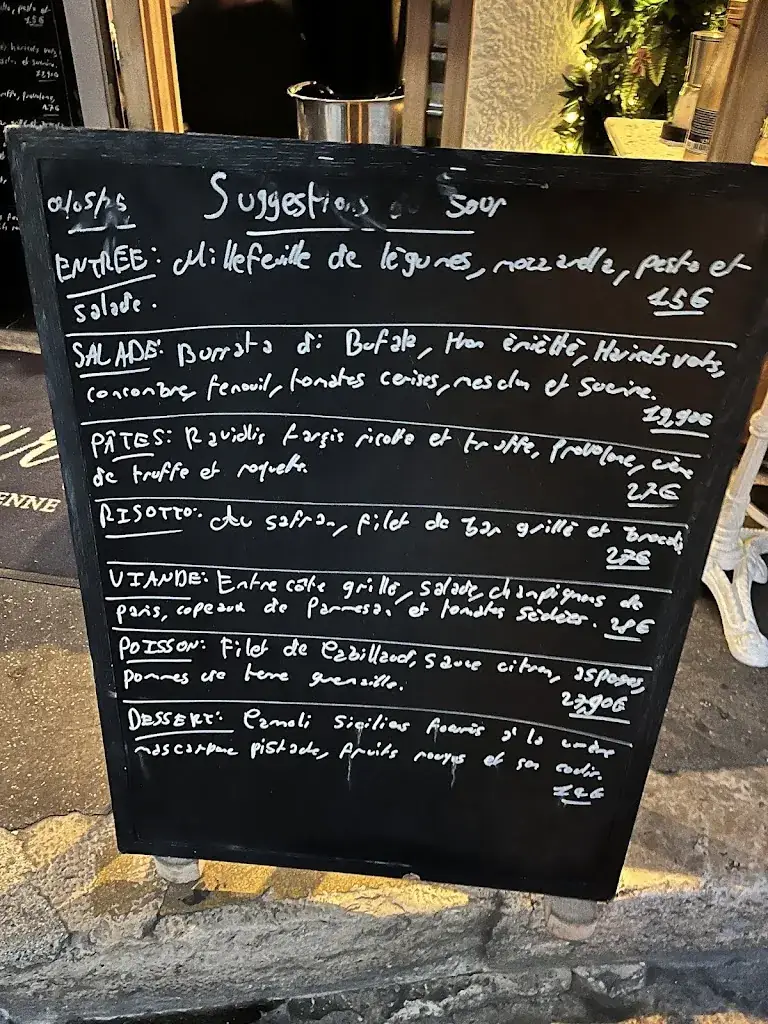 pesto et
15€
haricots verts,
et sucrine.
19,90€
truffe, provolone,
27€
ENNE
02/05/25 Suggestions du Jour
ENTRÉE: Millefeuille de lègumes, mozzarella, pesto et
salade. 15€
SALADE: Burrata di Bufala, thon èmiètté, Haricots verts,
concombre, fenouil, tomates cerises, mesclun et sucrine.
19,90€
PÂTES: Raviolis farcis ricotta et truffe, provolone, crème
de truffe et roquette.
27€
RISOTTO: Au safran, filet de bar grillé et brocolis
27€
VIANDE: Entre côte grillé, salade, champignons de
paris, copeaux de Parmesan et tomates Séchées. 28€
POISSON: Filet de Cabillaud, sauce citron, asperges,
pommes de terre grenaille.
23,90€
DESSERT: Cannoli Siciliens fourrés à la crème
mascarpone pistache, fruits rouges et son coulis.
14€